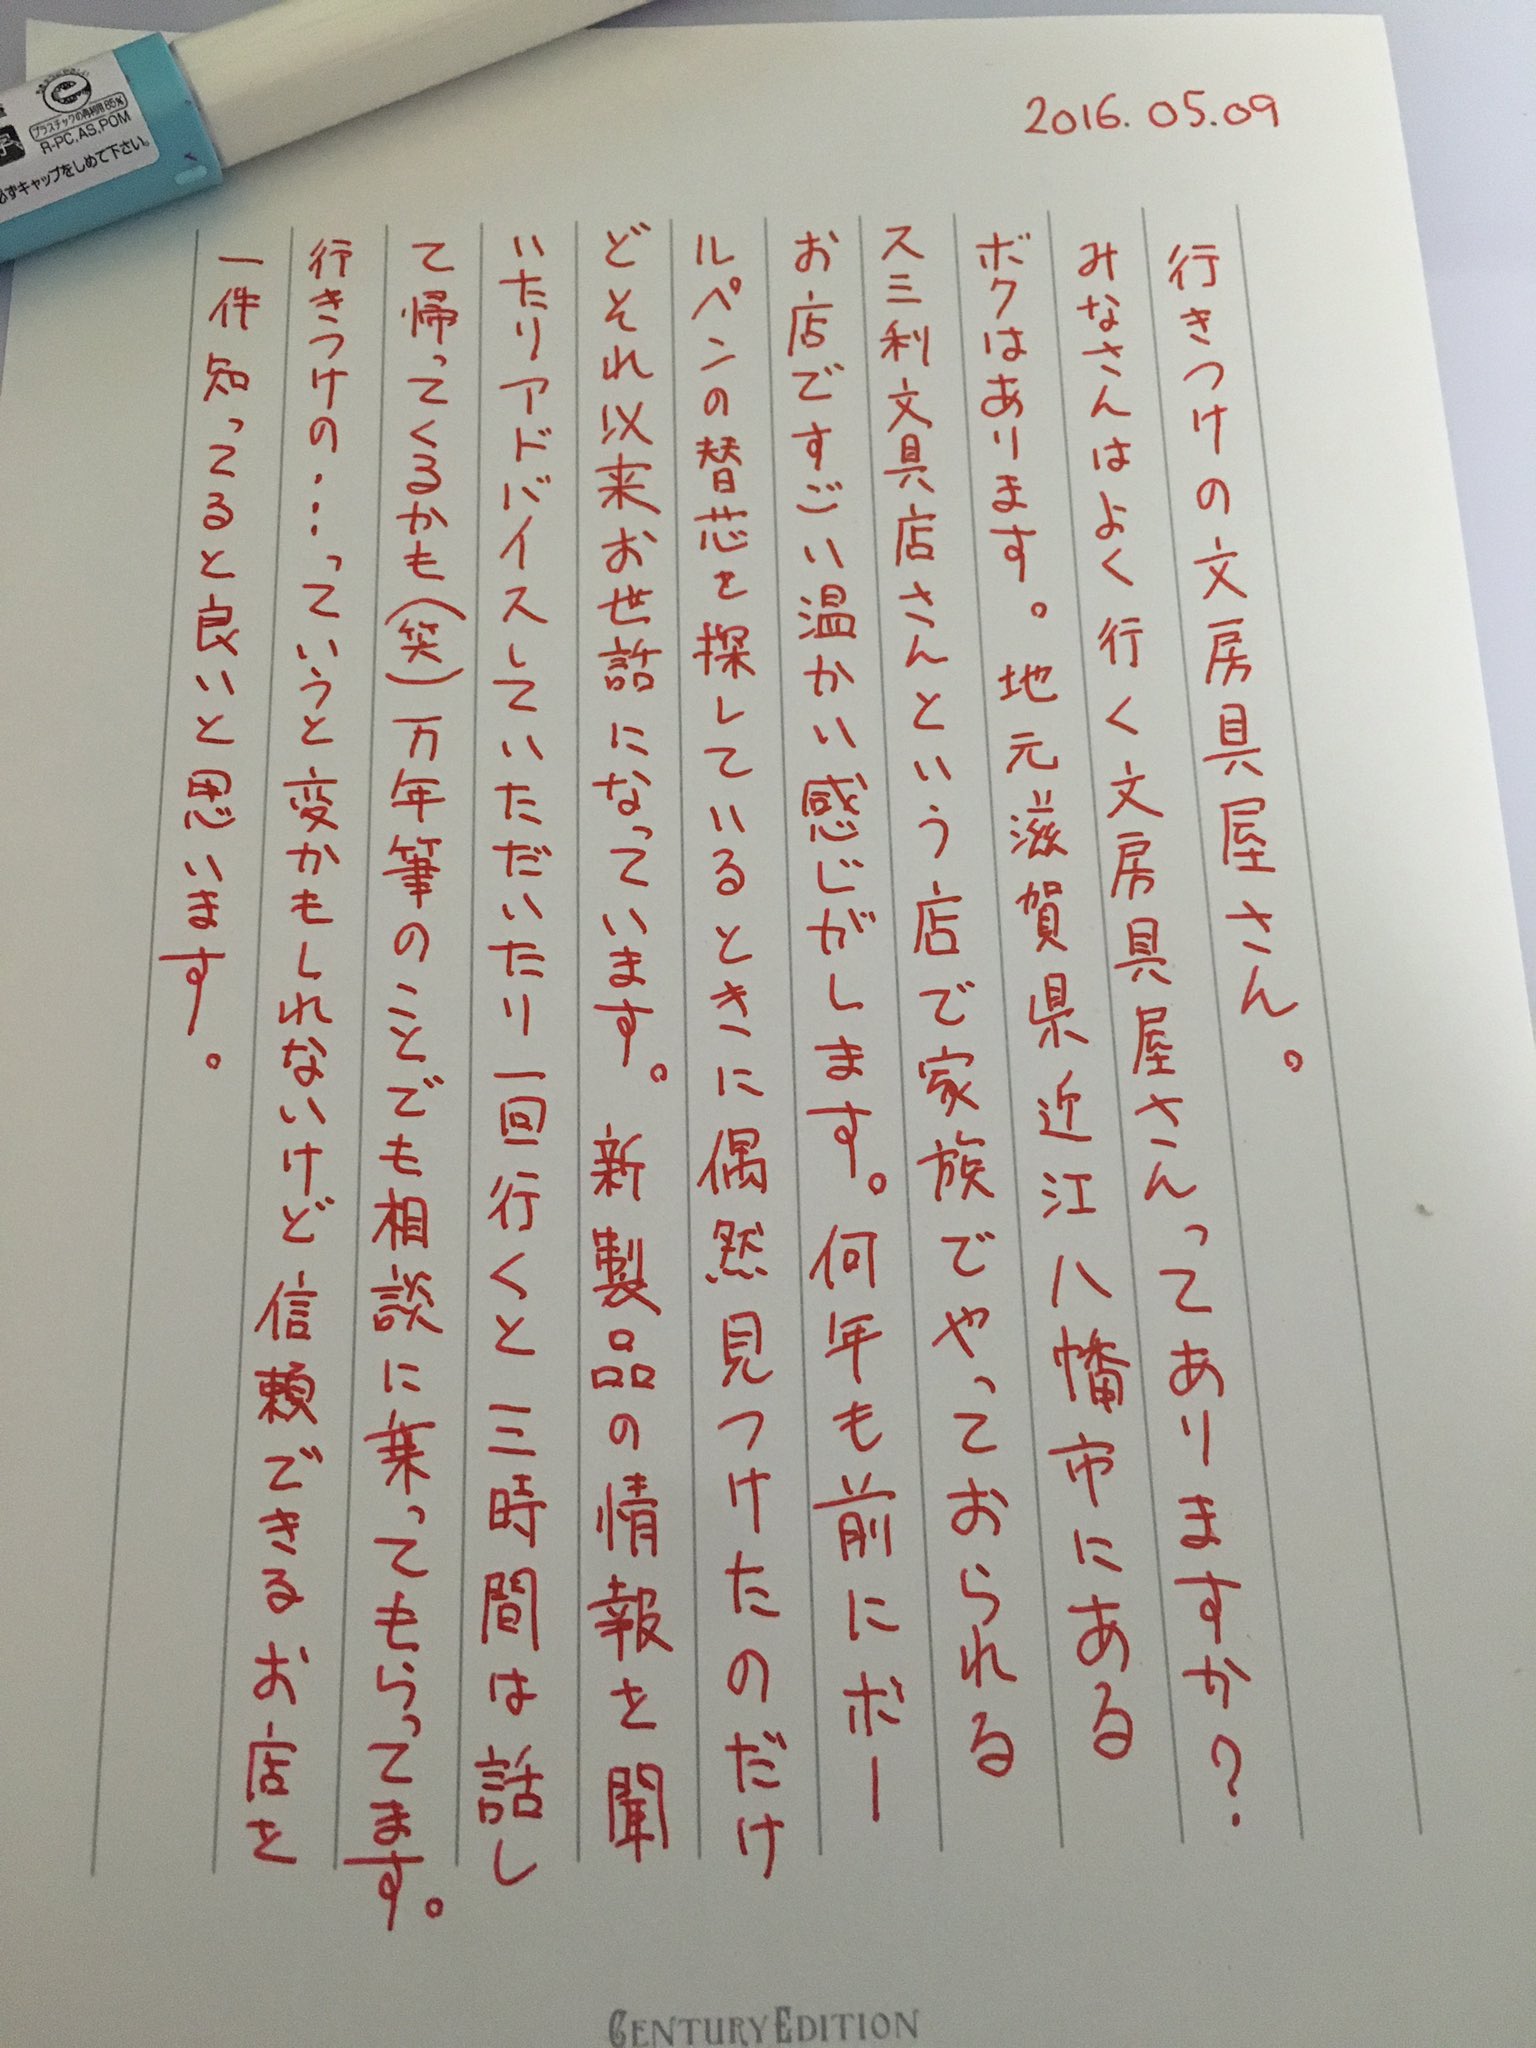 プラスチックの再利用85%
R-PC,AS,POM
必ずキャップをしめて下さい。
2016.05.09
行きつけの文房具屋さん。
みなさんはよく行く文房具屋さんってありますか?
ボクはあります。地元滋賀県近江八幡市にある
ス三利文具店さんという店で家族でやっておられる
お店ですごい温かい感じがします。何年も前にボー
ルペンの替芯を探しているときに偶然見つけたのだけ
どそれ以来お世話になっています。新製品の情報を聞
いたりアドバイスしていただいたり一回行くと三時間は話し
て帰ってくるかも(笑)万年筆のことでも相談に乗ってもらってます。
行きつけの...っていうと変かもしれないけど信頼できるお店を
一件知ってると良いと思います。
CENTURY EDITION